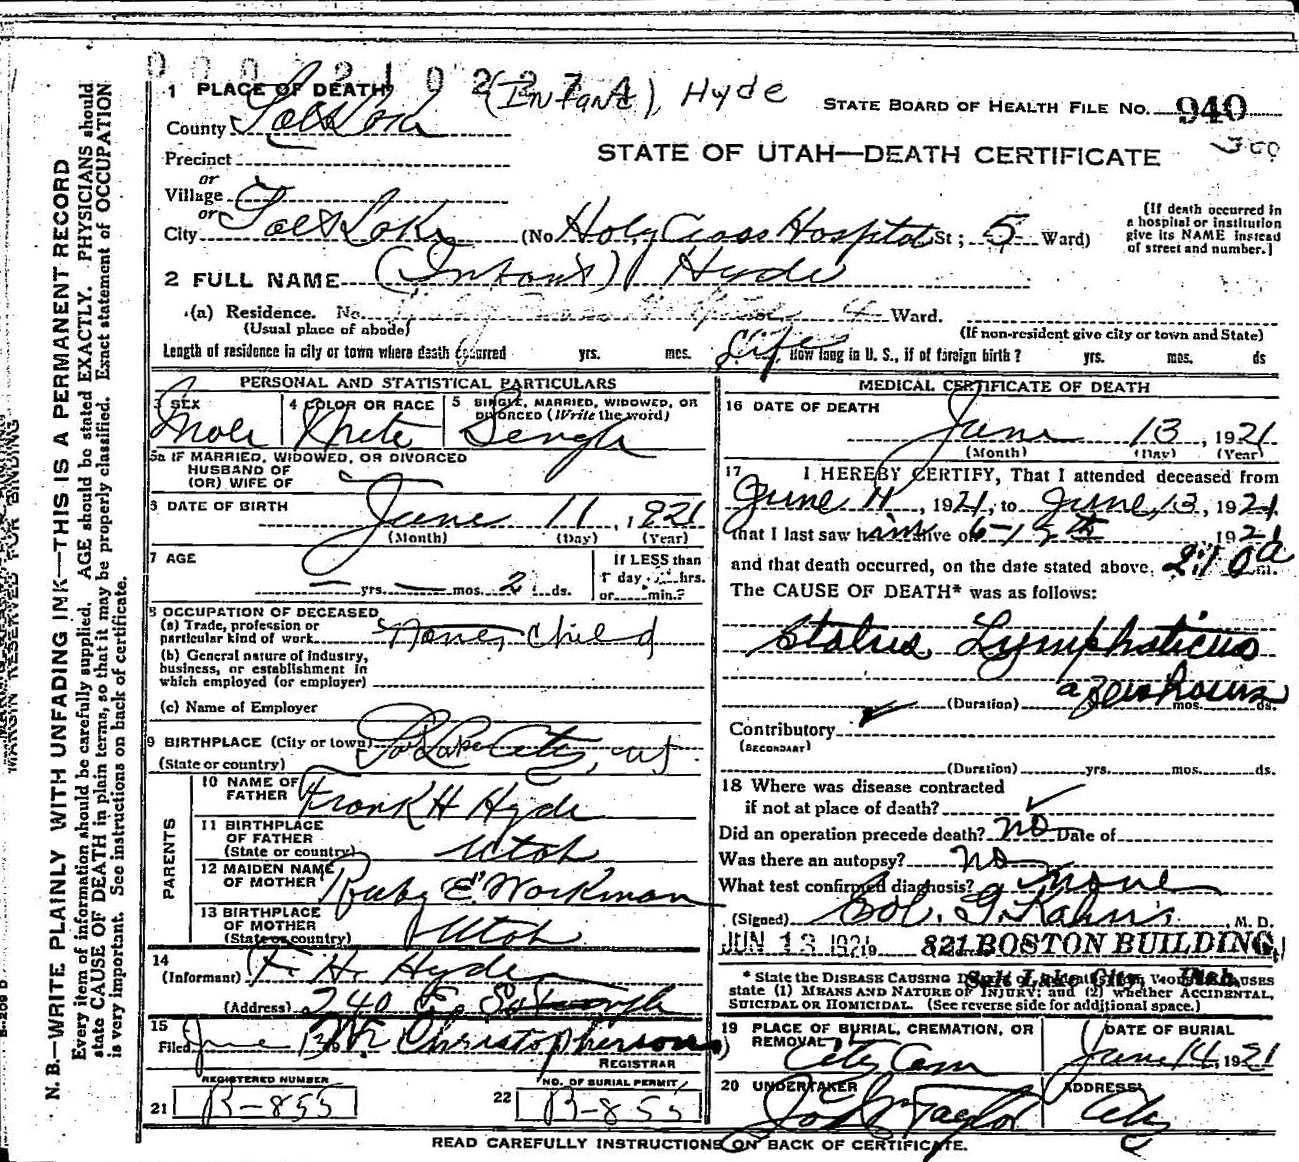 0002192274
1 PLACE OF DEATH (Infant) Hyde STATE BOARD OF HEALTH FILE NO. 940
County Salt Lake
300
Precinct
STATE OF UTAH—DEATH CERTIFICATE
or
Village
or
City Salt Lake (No Holy Cross Hospital St; 5 Ward)
(If death occurred in a hospital or institution give its NAME instead of street and number.)
2 FULL NAME (Infant) Hyde
(a) Residence. No. 4 Ward.
(Usual place of abode) (If non-resident give city or town and State)
Length of residence in city or town where death occurred yrs. mos. Life How long in U. S., if of foreign birth? yrs. mos. ds
PERSONAL AND STATISTICAL PARTICULARS
3 SEX Male
4 COLOR OR RACE White
5 SINGLE, MARRIED, WIDOWED, OR DIVORCED (Write the word) Single
5a IF MARRIED, WIDOWED, OR DIVORCED
HUSBAND OF
(OR) WIFE OF
6 DATE OF BIRTH June 11, 1921
(Month) (Day) (Year)
7 AGE — yrs. — mos. 2 ds.
If LESS than 1 day, hrs. or min.?
8 OCCUPATION OF DECEASED
(a) Trade, profession or particular kind of work None, Child
(b) General nature of industry, business, or establishment in which employed (or employer)
(c) Name of Employer
9 BIRTHPLACE (City or town) Salt Lake City, Ut.
(State or country)
PARENTS
10 NAME OF FATHER Frank H Hyde
11 BIRTHPLACE OF FATHER (State or country) Utah
12 MAIDEN NAME OF MOTHER Ruby E. Workman
13 BIRTHPLACE OF MOTHER (State or country) Utah
14 (Informant) F. H. Hyde
(Address) 240 E. So Temple
15 Filed June 13 Christopherson
REGISTRAR
REGISTERED NUMBER
21 B-855
NO. OF BURIAL PERMIT
22 B-855
MEDICAL CERTIFICATE OF DEATH
16 DATE OF DEATH
June 13, 1921
(Month) (Day) (Year)
17 I HEREBY CERTIFY, That I attended deceased from
June 11, 1921, to June, 13, 1921
that I last saw him alive on 6-12th 1921
and that death occurred, on the date stated above, 2:10 a m.
The CAUSE OF DEATH* was as follows:
Status Lymphaticus
a few hours
(Duration) yrs. mos. ds.
Contributory
(SECONDARY)
(Duration) yrs. mos. ds.
18 Where was disease contracted
if not at place of death?
Did an operation precede death? no Date of
Was there an autopsy? no
What test confirmed diagnosis? none
(Signed) Sol. G. Kahn M. D.
JUN 13 1921 19 821 BOSTON BUILDING,
Salt Lake City, Utah
* State the DISEASE CAUSING DEATH, or in deaths from VIOLENT CAUSES
state (1) MEANS AND NATURE OF INJURY; and (2) whether ACCIDENTAL,
SUICIDAL OR HOMICIDAL. (See reverse side for additional space.)
19 PLACE OF BURIAL, CREMATION, OR REMOVAL City Cem
DATE OF BURIAL June 14, 1921
20 UNDERTAKER Taylor
ADDRESS City
READ CAREFULLY INSTRUCTIONS ON BACK OF CERTIFICATE.
MARGIN RESERVED FOR BINDING
N. B.—WRITE PLAINLY WITH UNFADING INK—THIS IS A PERMANENT RECORD
Every item of information should be carefully supplied. AGE should be stated EXACTLY. PHYSICIANS should
state CAUSE OF DEATH in plain terms, so that it may be properly classified. Exact statement of OCCUPATION
is very important. See instructions on back of certificate.